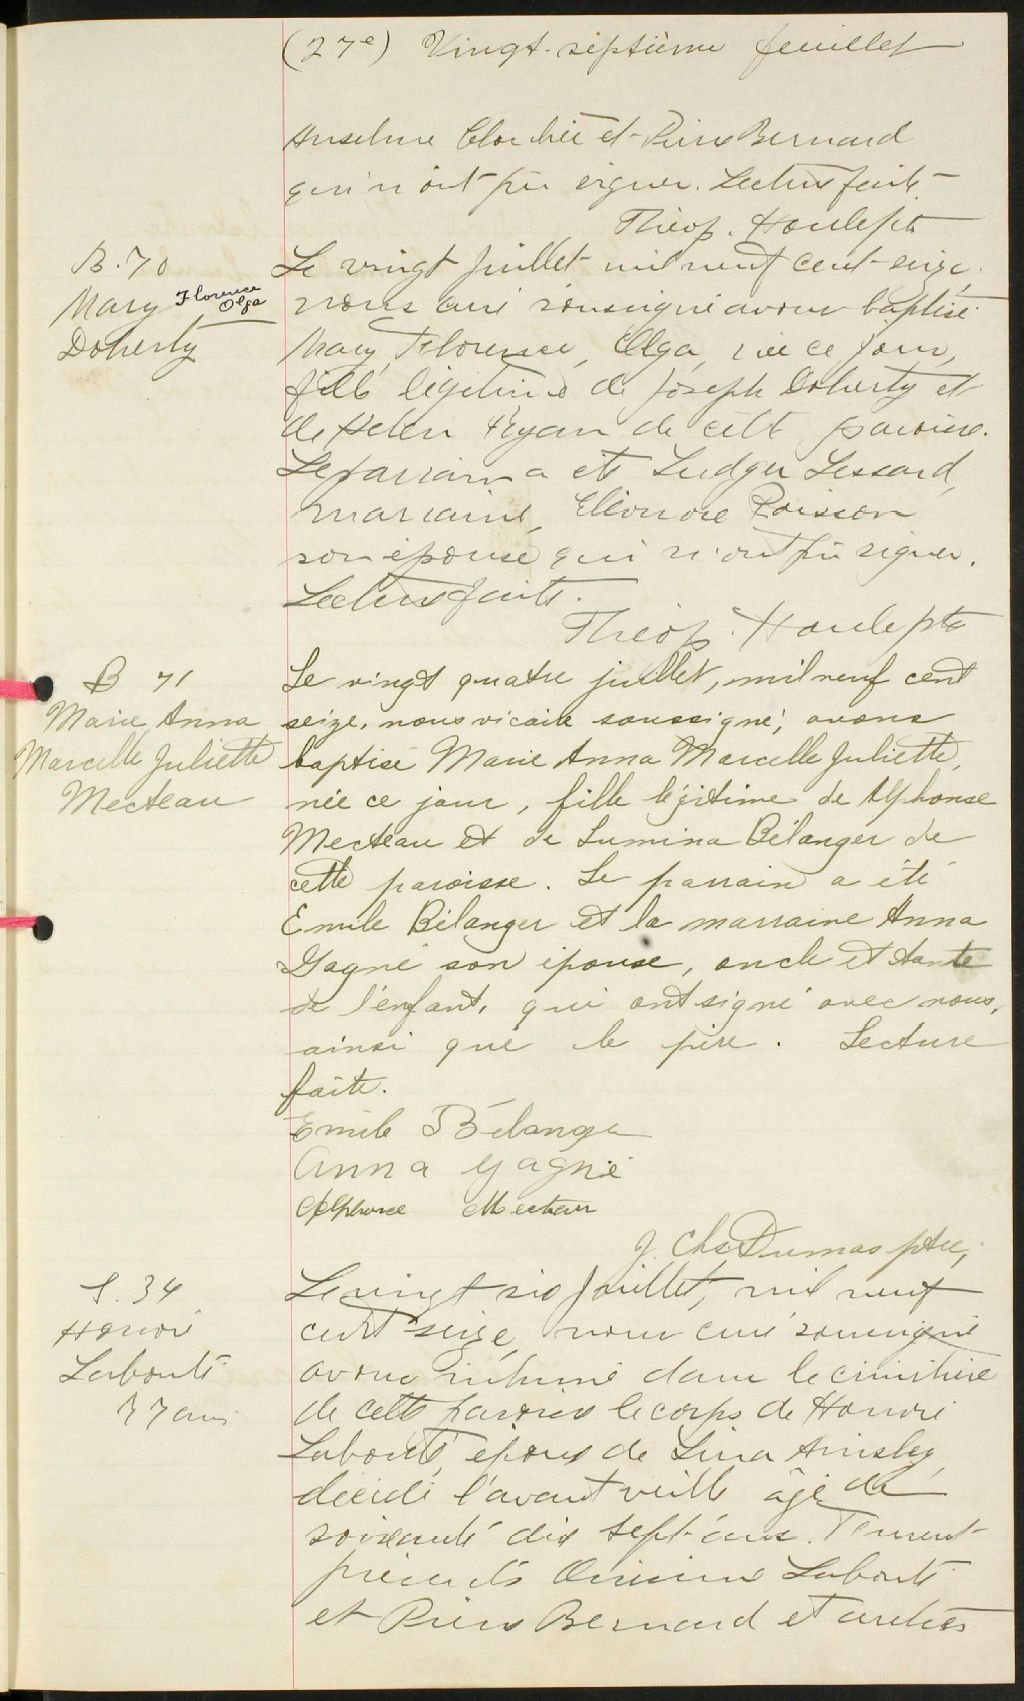 (27e) Vingt-septième feuillet
Anselme Cloutier et Pierre Bernard
qui n'ont pu signer. Lecture faite
Théop. Houle ptr
B. 70
Mary Florence
Olga
Doherty
Le vingt juillet mil neuf cent seize,
nous curé soussigné avons baptisé
Mary, Florence, Olga, née ce jour,
fille légitime de Joseph Doherty et
de Helen Ryan de cette paroisse.
Le parrain a été Ludger Lessard,
marraine, Eléonore Poisson
son épouse qui n'ont pu signer.
Lecture faite.
Théop. Houle ptr
B 71
Marie Anna
Marcelle Juliette
Mecteau
Le vingt quatre juillet, mil neuf cent
seize, nous vicaire soussigné, avons
baptisé Marie Anna Marcelle Juliette,
née ce jour, fille légitime de Alphonse
Mecteau et de Lumina Bélanger de
cette paroisse. Le parrain a été
Emile Bélanger et la marraine Anna
Gagné son épouse, oncle et tante
de l'enfant, qui ont signé avec nous,
ainsi que le père. Lecture
faite.
Emile Bélanger
Anna Gagné
Alphonse Mecteau
J. Chs Dumas ptre,
S. 34
Honoré
Labonté
77 ans
Le vingt six juillet, mil neuf
cent seize, nous curé soussigné
avons inhumé dans le cimetière
de cette paroisse le corps de Honoré
Labonté, époux de Lina Ainsley
décédé l'avant veille âgé de
soixante dix sept ans. Furent
présents Onésime Labonté
et Pierre Bernard et autres